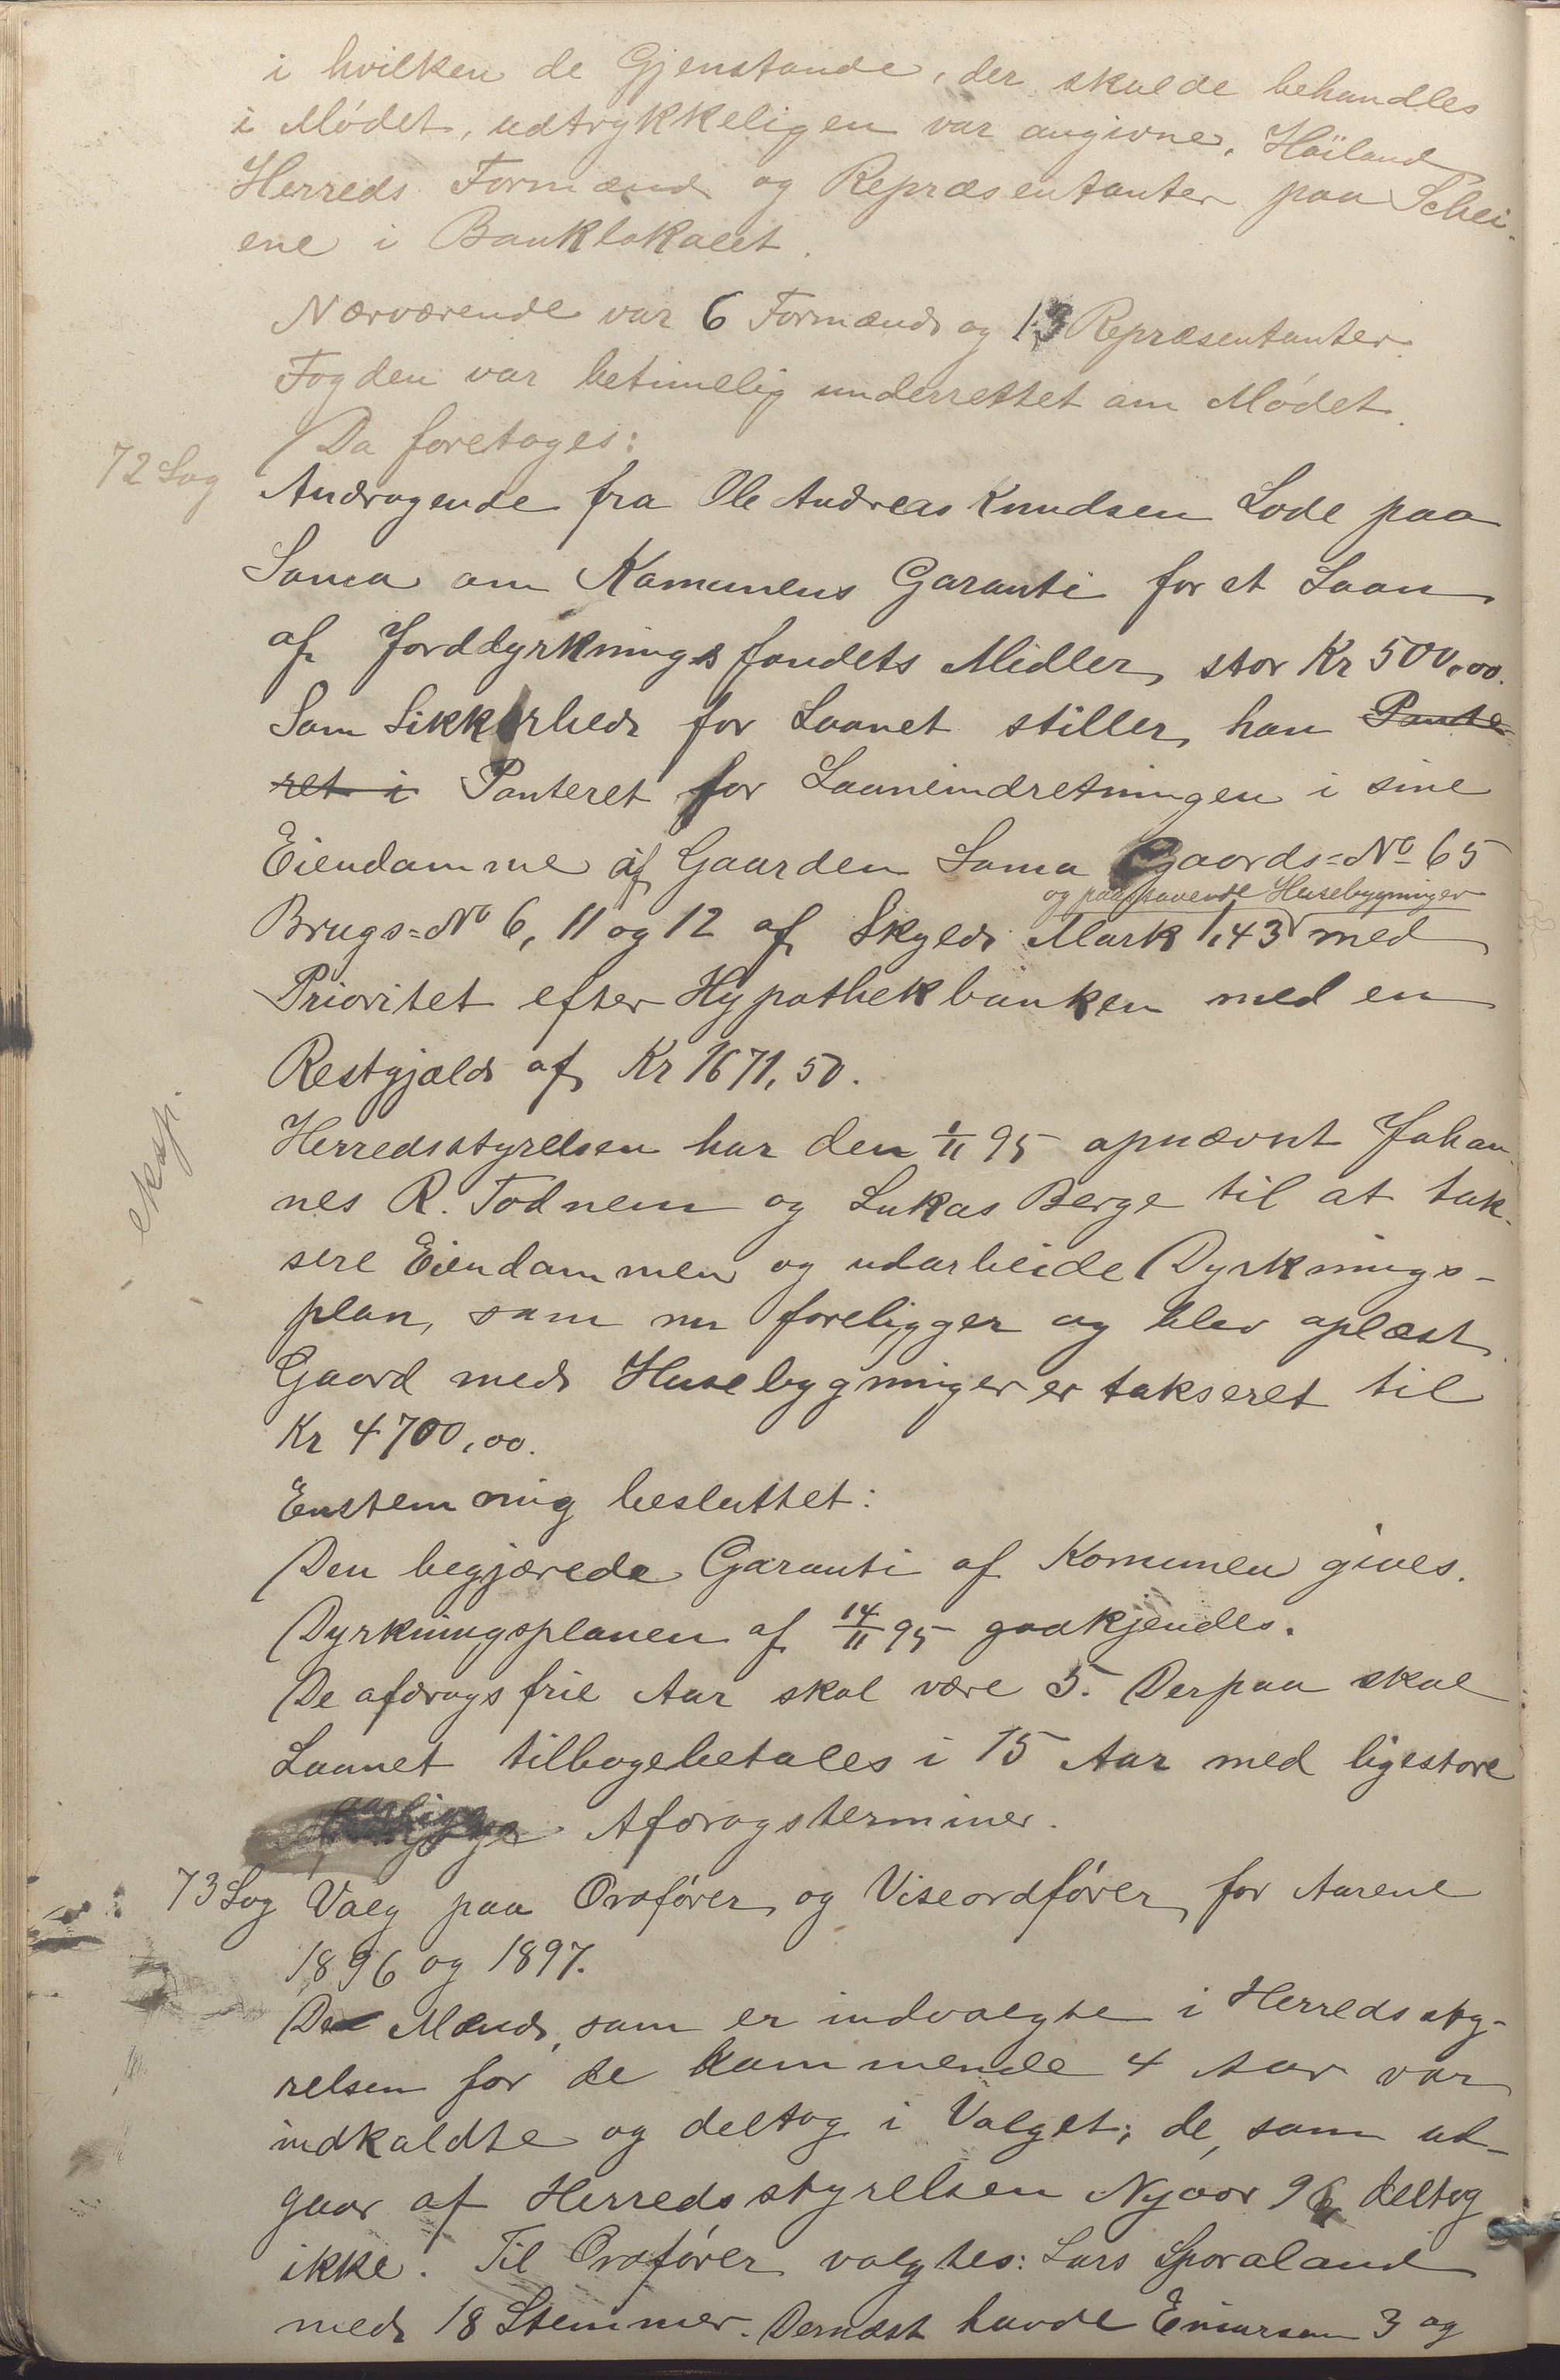 i hvilken de Gjenstande, der skulde behandles
i Mødet, udtrykkeligen var angivne, Høiland
Herreds Formænd og Repræsentanter paa Schei-
ene i Banklokalet.
Nærværende var 6 Formænd og 13 Repræsentanter.
Fogden var betimelig underrettet om Mødet.
Da foretoges:
72 Sag Andragende fra Ole Andreas Knudsen Lode paa
Soma om Komunens Garanti for et Laan
af Jorddyrkningsfondets Midler, stor Kr 500,00.
Som Sikkerhed for Laanet stiller han Pante-
ret i Panteret for Laaneindretningen i sine
Eiendomme af Gaarden Soma Gaards-No 65
og paastaaende Husebygninger
Brugs-No 6, 11 og 12 af Skyld Mark 1,43 med
Prioritet efter Hypothekbanken med en
Restgjæld af Kr 1671,50.
eksp.
Herredsstyrelsen har den 1/11 95 opnævnt Johan-
nes R. Todnem og Lukas Berge til at tak-
sere Eiendommen og udarbeide Dyrknings-
plan, som nu foreligger og blev oplæst.
Gaard med Husebygninger er takseret til
Kr 4700,00.
Enstemmig besluttet:
Den begjærede Garanti af Komunen gives.
Dyrkningsplanen af 14/11 95 godkjendes.
De afdragsfrie Aar skal være 5. Derpaa skal
Laanet tilbagebetales i 15 Aar med ligestore
Afdragsterminer.
73 Sag Valg paa Ordfører og Viseordfører for Aarene
1896 og 1897.
De Mænd, som er indvalgte i Herredssty-
relsen for de kommende 4 Aar var
indkaldte og deltog i Valget; de, som ud-
gaar af Herredsstyrelsen Nyaar 96 deltog
ikke. Til Ordfører valgtes: Lars Sporaland
med 18 Stemmer. Dernæst havde Einarsen 3 og